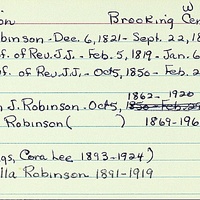 on Brooking Cem W
binson - Dec. 6, 1821 - Sept. 22, 18
f. of Rev. J.J. - Feb. 5, 1819 - Jan. 6
f. of Rev. J.J. - Oct 5, 1850 - Feb. 2
1862- 1920
n J. Robinson. Oct 5, 1850 - Feb. 29
Robinson ( ) 1869-196
gs, Cora Lee 1893-1924)
lla Robinson 1891-1919